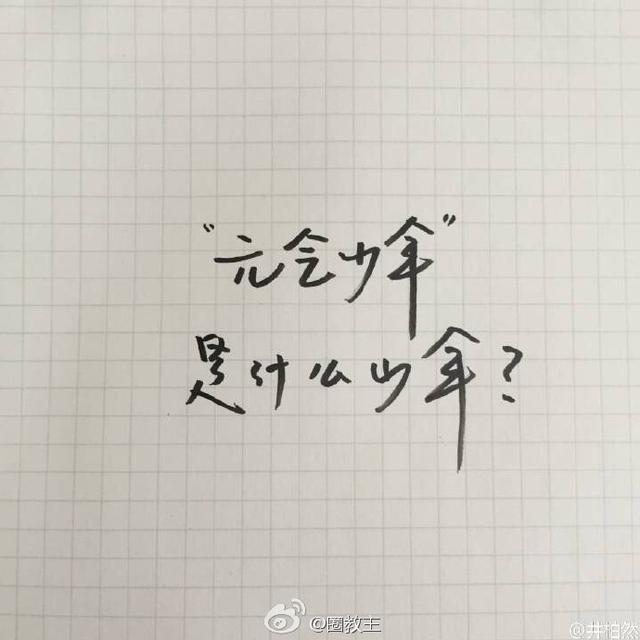 “元气少年”
是什么少年？
@圈教主
@井柏然